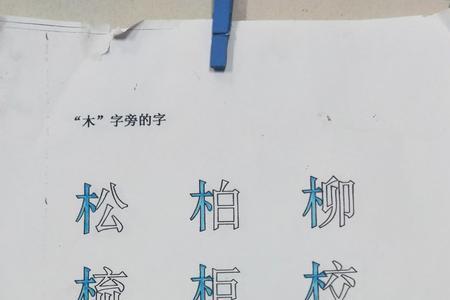 “木”字旁的字
松 柏 柳
梳 柜 校